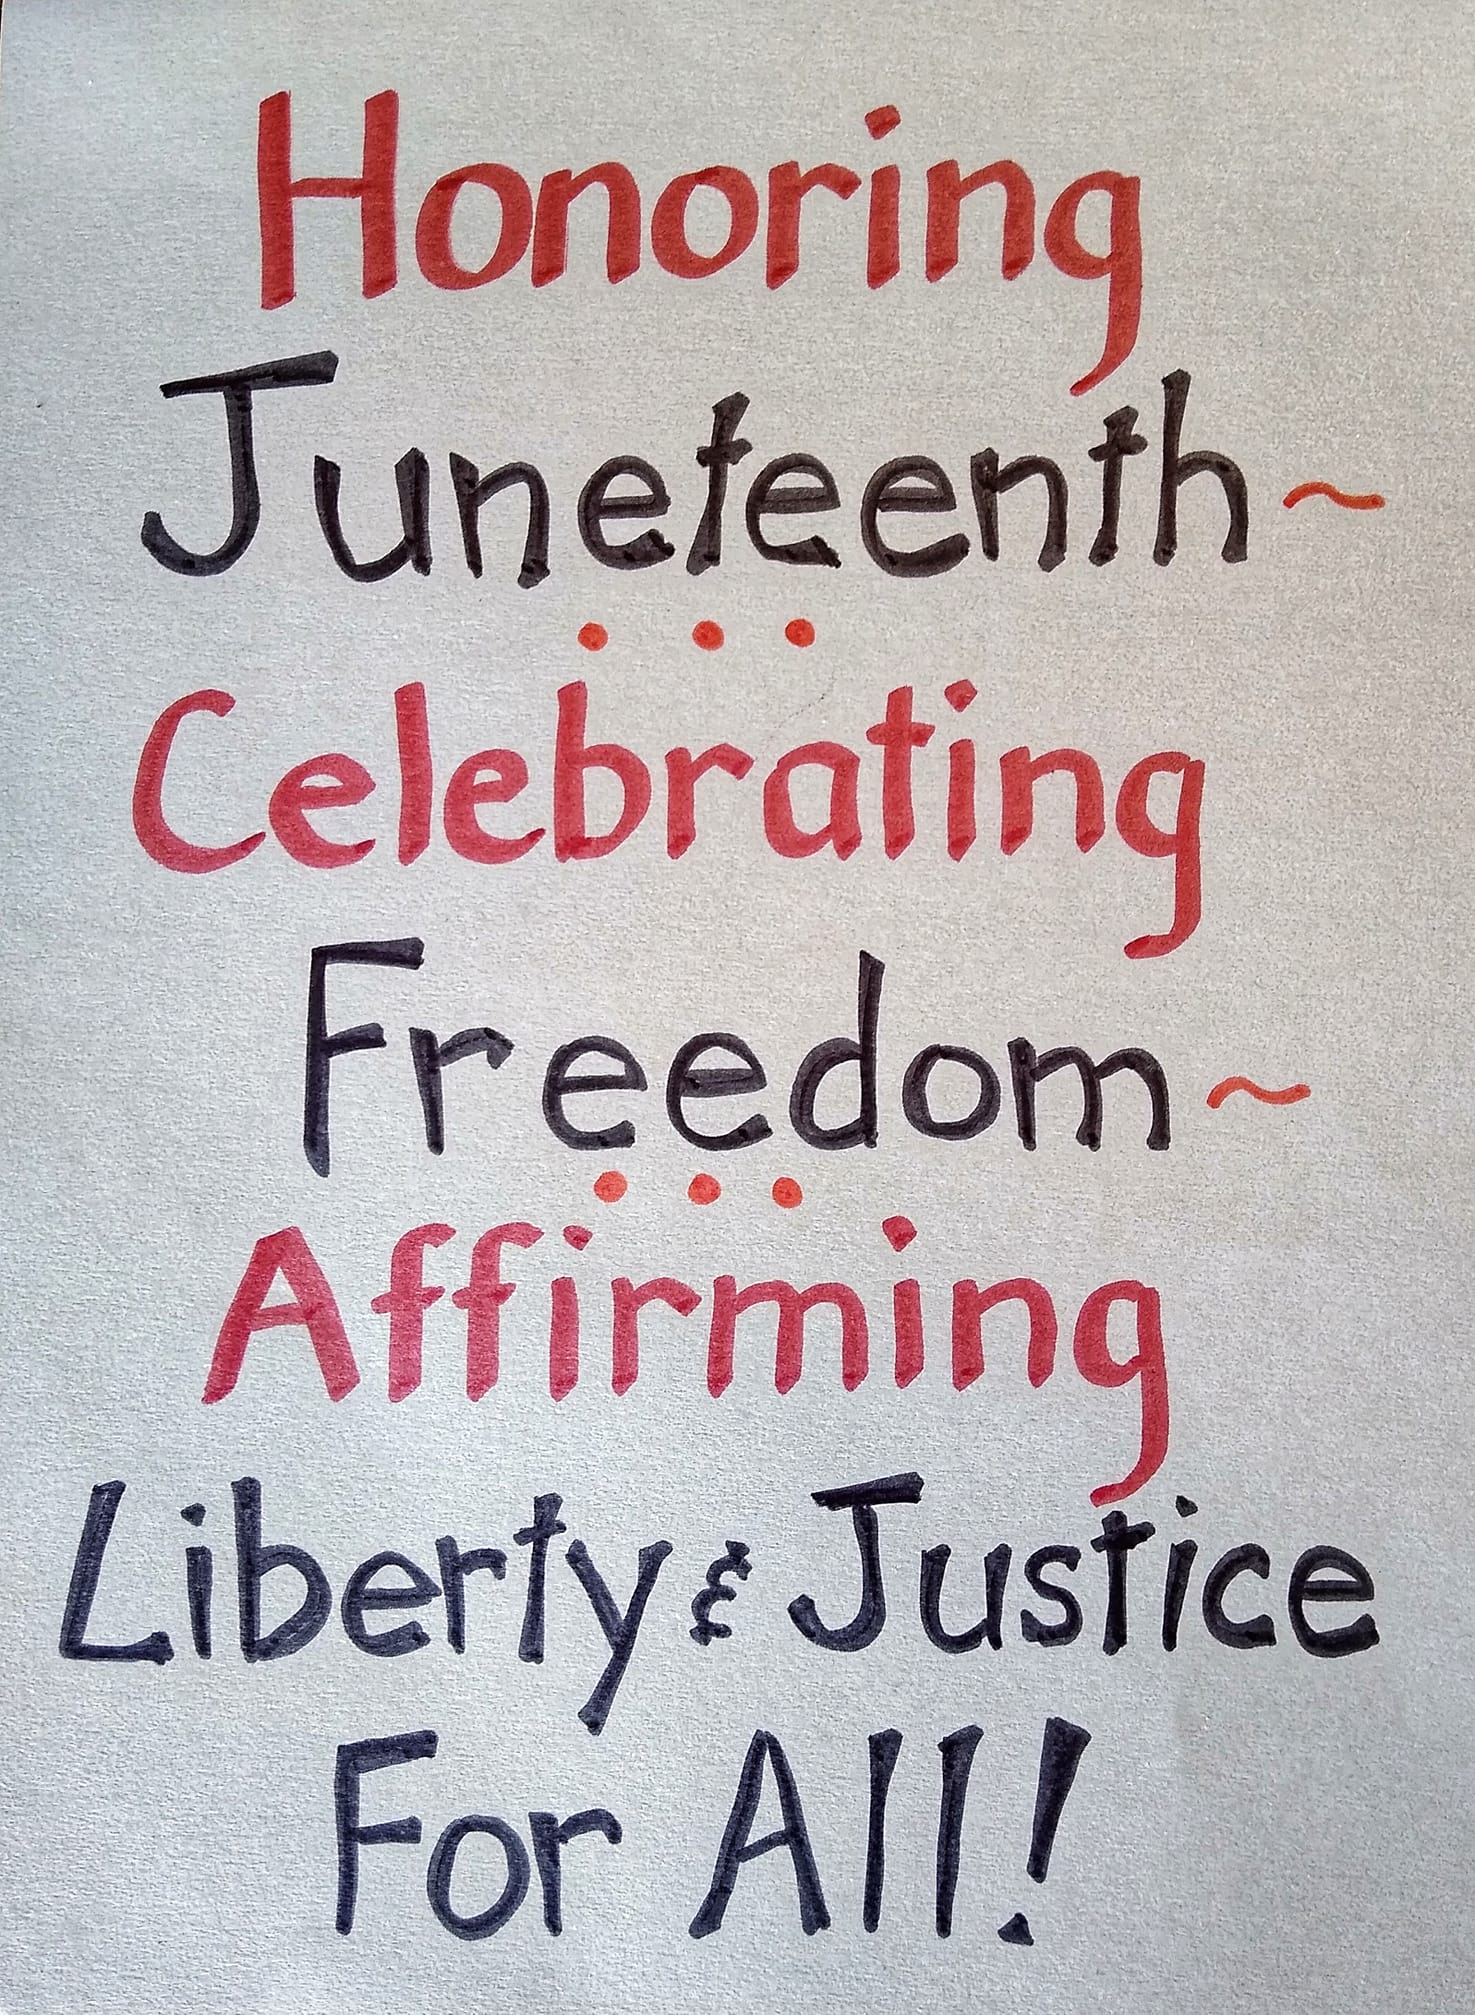 Honoring
Juneteenth~
• • •
Celebrating
Freedom~
• • •
Affirming
Liberty & Justice
For All!